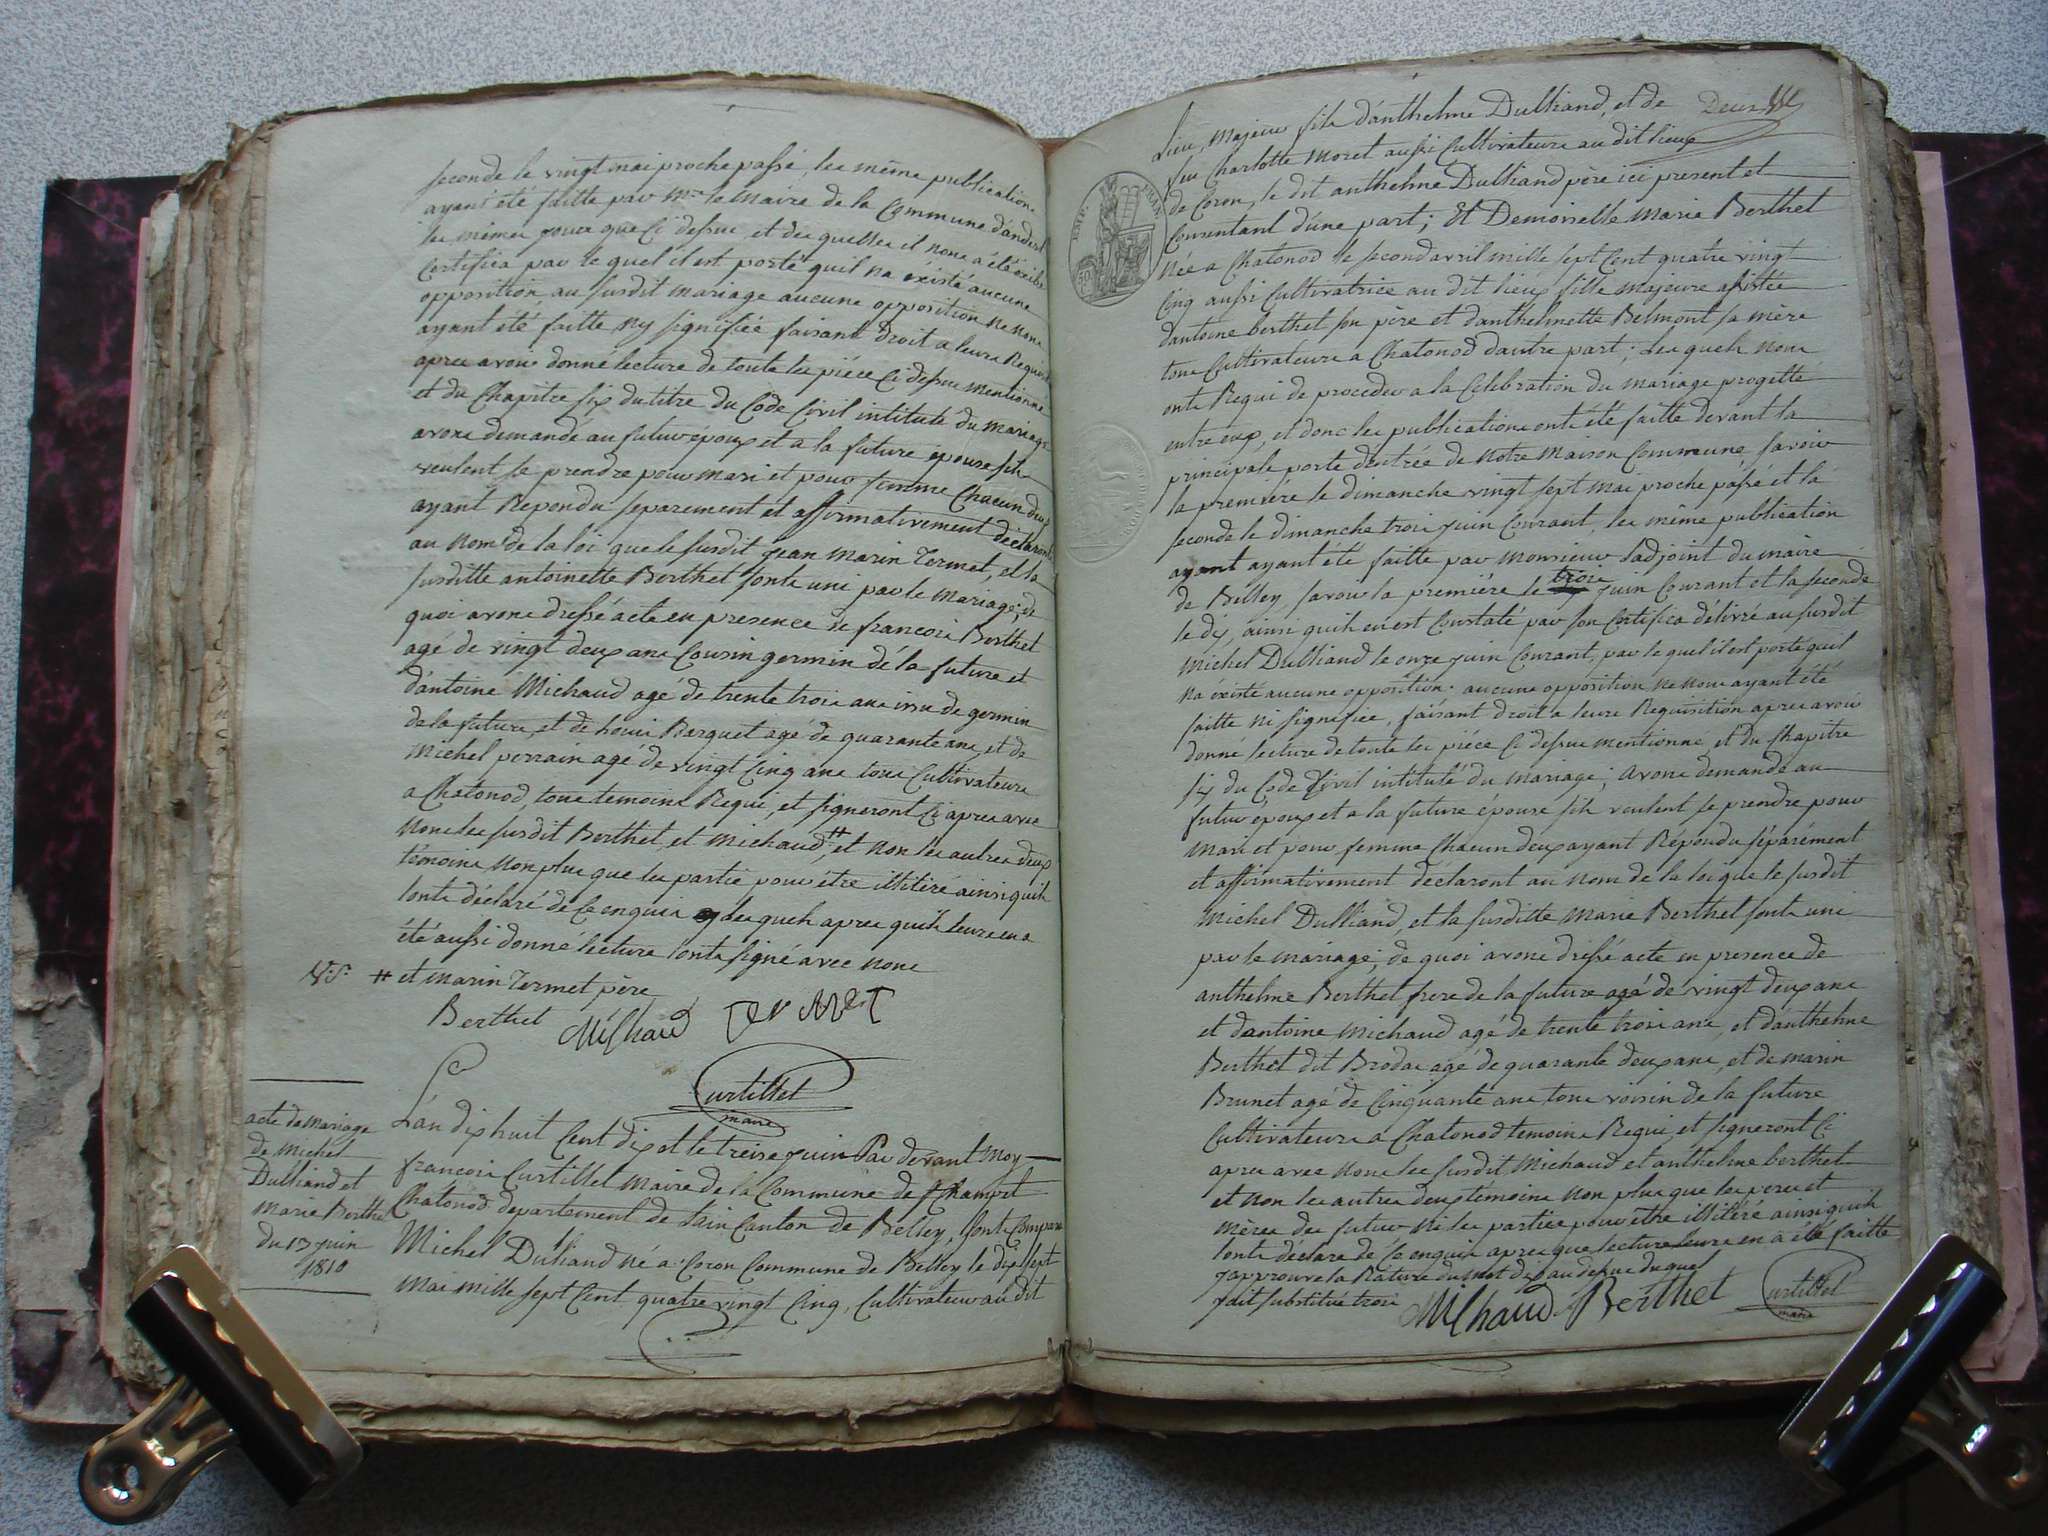 seconde le vingt mai proche passé, les même publications
ayant été faitte par Mr le Maire de la Commune d'andert
les mêmes jours que Ci dessus et des quelles il nous a été exibé
Certifica par le quel il est porté quil na éxisté aucune
opposition, au susdit mariage aucune opposition ne nous
ayant été faitte ny signifiée faisant droit a leurs Requi
apres avoir donné lecture de toute les piéce Ci dessus mentionne
et du Chapitre six du titre du Code Civil intitulé du mariage
avons demandé au futur époux et a la future épouse sils
veulent se prendre pour mari et pour femme Chacun deux
ayant Repondu separement et affirmativement déclarons
au nom de la loi que le susdit jean marin Termet, et la
susditte antoinette Berthet sonts uni par le mariage; de
quoi avons dressé acte en presence de francois Berthet
agé de vingt deux ans Cousin germin dé la future et
d'antoine Michaud agé de trente trois ans issu de germin
de la future, et de louis Barquet agé de quarante ans, et de
Michel perrain agé de vingt Cinq ans tous Cultivateurs
a Chatonod, tous temoins Requi, et signeront Ci apres avec
nous les susdit Berthet et Michaud, # et non les autres deux
témoins non plus que les partie pour être illitéré ainsi quils
lonts déclaré de Ce enquis les quels apres quils leurs en a
été aussi donné lecture lonts signé avec nous
# et marin Termet père
Berthet Milhaud Ter Met
Curtillet
maire
acte de mariage
de michel
Dulliand et
marie Berthet
du 13 juin
1810
L'an dix huit Cent dix et le treise juin Par devant Moy
françois Curtillet Maire de la Commune de
Chatonod departement de lain Canton de Belley, sonts Compare
Michel Dulliand né a Coron Commune de Belley le dix sept
mai mille sept Cent quatre vingt Cinq, Cultivateur au dit
Deux
lieu, Majeur fils d'anthelme Dulliand, et de
feu Charlotte Moret aussi Cultivateurs au dit lieux
de Coron, le dit anthelme Dulliand père ici present et
Consentant d'une part; Et Demoiselle Marie Berthet
Née a Chatonod le second avril mille sept Cent quatre vingt
Cinq aussi Cultivatrice au dit lieux fille majeure assistée
dantoine berthet son pere et danthelmette Belmont sa mère
tous Cultivateurs a Chatonod dautre part; Les quels nous
onts Requi de proceder a la Celebration du mariage progetté
entre eux, et donc les publications onts été faitte devant la
principale porte dentrée de notre Maison Commune savoir
la première le dimanche vingt sept mai proche passé et la
seconde le dimanche trois juin Courant, les même publication
ayant ayant été faitte par monsieur Ladjoint du maire
trois
de Belley savoir la première le juin Courant et la seconde
le dix, ainsi quils en est Constaté par son Certifica délivré au susdit
Michel Dulliand le onze juin Courant, par le quel il est porté quil
na éxisté aucune opposition. aucune opposition ne nous ayant été
faitte ni signifiée, faisant droit a leurs Requisition apres avoir
donné lecture de toute les piéce Ci dessus mentionné et du Chapitre
six du Code Civil intitulé du mariage; avons demandé au
futur époux et a la future epouse sils veulent se prendre pour
Mari et pour femme Chacun deux ayant Répondu séparément
et affirmativement déclaront au nom de la loi que le susdit
Michel Dulliand, et la susditte Marie Berthet sonts uni
par le mariage, de quoi avons dréssé acte en presence de
anthelme Berthet frere de la future agé de vingt deux ans
et dantoine Michaud agé de trente trois ans, et danthelme
Berthet dit Brodas agé de quarante deux ans, et de marin
Brunet agé de Cinquante ans tous voisin de la future
Cultivateurs a Chatonod temoins Requi et signeront Ci
apres avec nous les susdit Michaud et anthelme berthet
et non les autres deux témoins non plus que les peres et
mères des futurs ni les parties pour être illitéré ainsi quils
lonts déclaré de Ce enquis apres que lecture leurs en a été faitte
japprouve la Rature du mot dix au dessus duquel
jait substitué trois
Milhaud Berthet Curtillet
maire